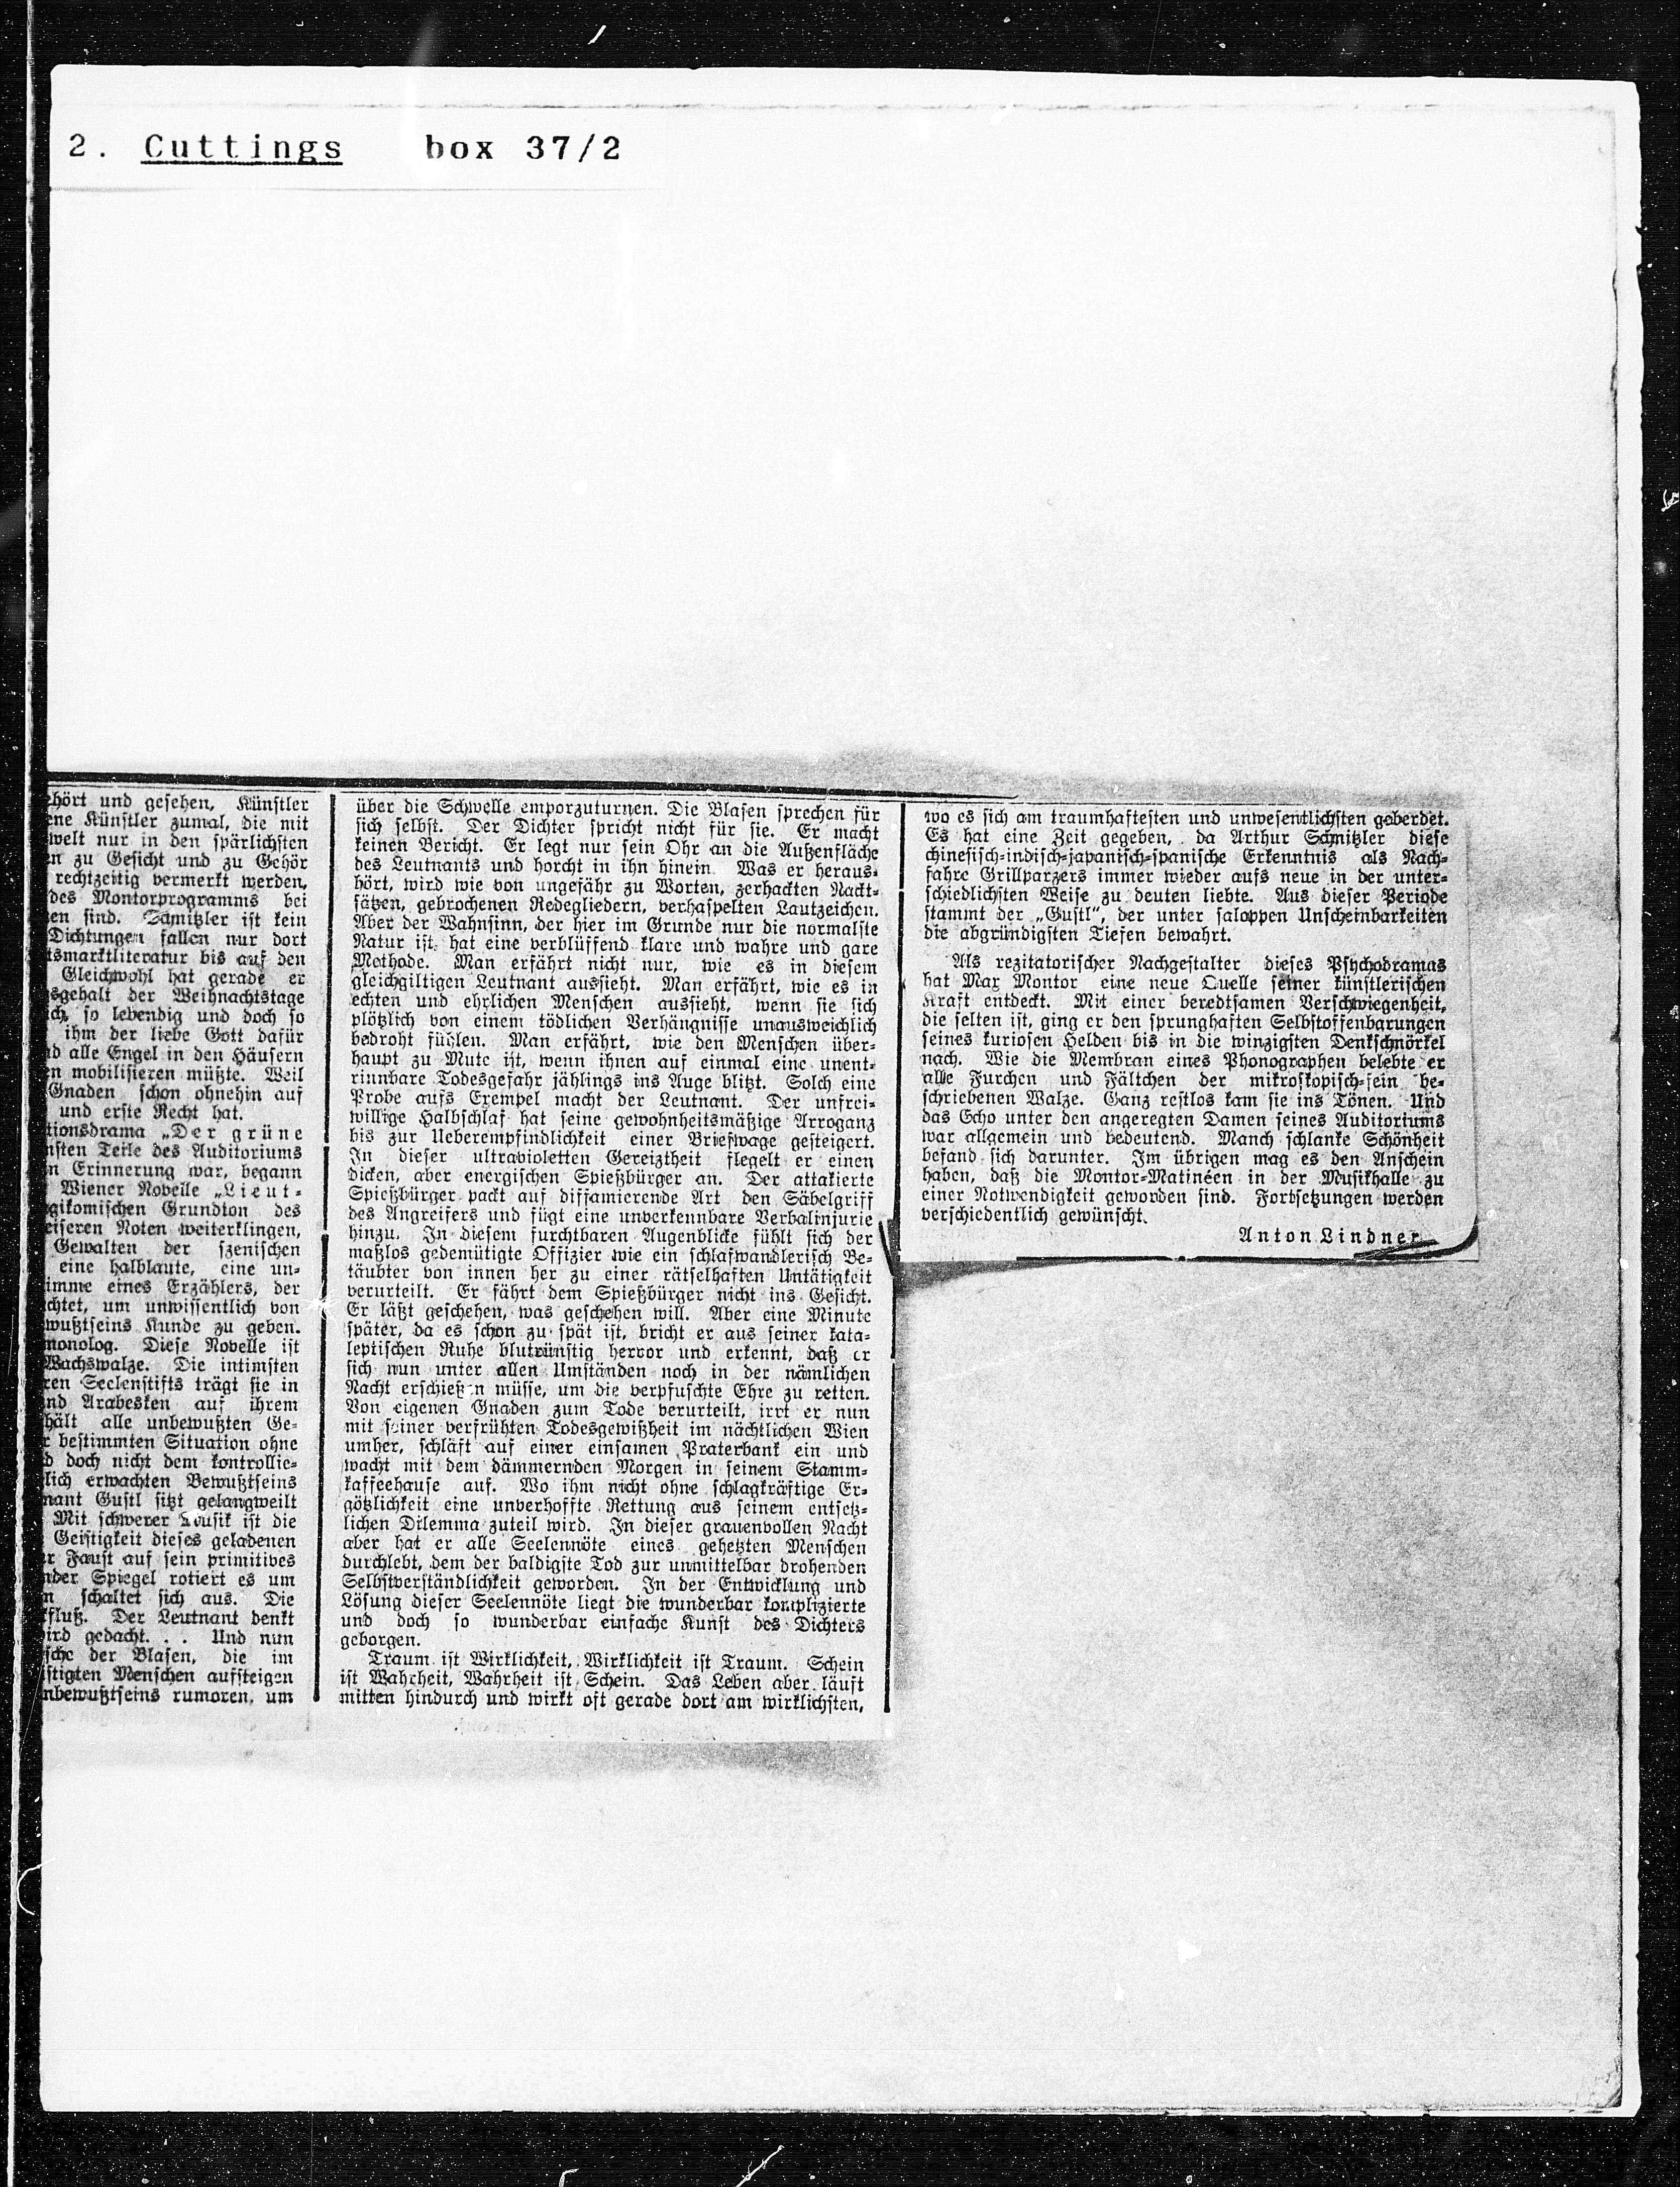 2. Cuttings box 37/2
ehört und gesehen, Künstler
ene Künstler zumal, die mit
welt nur in den spärlichsten
en zu Gesicht und zu Gehör
rechtzeitig vermerkt werden,
des Montorprogramms bei
en sind. Schnitzler ist kein
Dichtungen fallen nur dort
tsmarktliteratur bis auf den
Gleichwohl hat gerade er
sgehalt der Weihnachtstage
ich, so lebendig und doch so
ihm der liebe Gott dafür
nd alle Engel in den Häusern
en mobilisieren müßte. Weil
Gnaden schon ohnehin auf
und erste Recht hat.
tionsdrama „Der grüne
nsten Teile des Auditoriums
n Erinnerung war, begann
Wiener Novelle „Lieut-
gikomischen Grundton des
eiseren Noten weiterklingen,
Gewalten der szenischen
eine halblaute, eine un-
imme eines Erzählers, der
chtet, um unwissentlich von
wußtseins Kunde zu geben.
monolog. Diese Novelle ist
Wachswalze. Die intimsten
ren Seelenstifts trägt sie in
nd Arabesken auf ihrem
hält alle unbewußten Ge-
r bestimmten Situation ohne
d doch nicht dem kontrollie-
lich erwachten Bewußtseins
nant Gustl sitzt gelangweilt
Mit schwerer Musik ist die
Geistigkeit dieses geladenen
r Faust auf sein primitives
nder Spiegel rotiert es um
n schaltet sich aus. Die
kfluß. Der Leutnant denkt
ird gedacht. . . Und nun
sche der Blasen, die im
stigten Menschen aufsteigen
nbewußtseins rumoren, um
über die Schwelle emporzuturnen. Die Blasen sprechen für
sich selbst. Der Dichter spricht nicht für sie. Er macht
keinen Bericht. Er legt nur sein Ohr an die Außenfläche
des Leutnants und horcht in ihn hinein. Was er heraus-
hört, wird wie von ungefähr zu Worten, zerhackten Nackt-
sätzen, gebrochenen Redegliedern, verhaspelten Lautzeichen.
Aber der Wahnsinn, der hier im Grunde nur die normalste
Natur ist, hat eine verblüffend klare und wahre und gare
Methode. Man erfährt nicht nur, wie es in diesem
gleichgiltigen Leutnant aussieht. Man erfährt, wie es in
echten und ehrlichen Menschen aussieht, wenn sie sich
plötzlich von einem tödlichen Verhängnisse unausweichlich
bedroht fühlen. Man erfährt, wie den Menschen über-
haupt zu Mute ist, wenn ihnen auf einmal eine unent-
rinnbare Todesgefahr jählings ins Auge blitzt. Solch eine
Probe aufs Exempel macht der Leutnant. Der unfrei-
willige Halbschlaf hat seine gewohnheitsmäßige Arroganz
bis zur Ueberempfindlichkeit einer Briefwage gesteigert.
In dieser ultravioletten Gereiztheit flegelt er einen
dicken, aber energischen Spießbürger an. Der attakierte
Spießbürger packt auf diffamierende Art den Säbelgriff
des Angreifers und fügt eine unverkennbare Verbalinjurie
hinzu. In diesem furchtbaren Augenblicke fühlt sich der
maßlos gedemütigte Offizier wie ein schlafwandlerisch Be-
täubter von innen her zu einer rätselhaften Untätigkeit
verurteilt. Er fährt dem Spießbürger nicht ins Gesicht.
Er läßt geschehen, was geschehen will. Aber eine Minute
später, da es schon zu spät ist, bricht er aus seiner kata-
leptischen Ruhe blutrünstig hervor und erkennt, daß er
sich nun unter allen Umständen noch in der nämlichen
Nacht erschießen müsse, um die verpfuschte Ehre zu retten.
Von eigenen Gnaden zum Tode verurteilt, irrt er nun
mit seiner verfrühten Todesgewißheit im nächtlichen Wien
umher, schläft auf einer einsamen Praterbank ein und
wacht mit dem dämmernden Morgen in seinem Stamm-
kaffeehause auf. Wo ihm nicht ohne schlagkräftige Er-
götzlichkeit eine unverhoffte Rettung aus seinem entsetz-
lichen Dilemma zuteil wird. In dieser grauenvollen Nacht
aber hat er alle Seelennöte eines gehetzten Menschen
durchlebt, dem der baldigste Tod zur unmittelbar drohenden
Selbstverständlichkeit geworden. In der Entwicklung und
Lösung dieser Seelennöte liegt die wunderbar komplizierte
und doch so wunderbar einfache Kunst des Dichters
geborgen.
Traum ist Wirklichkeit, Wirklichkeit ist Traum. Schein
ist Wahrheit, Wahrheit ist Schein. Das Leben aber läuft
mitten hindurch und wirkt oft gerade dort am wirklichsten,
wo es sich am traumhaftesten und unwesentlichsten geberdet.
Es hat eine Zeit gegeben, da Arthur Schnitzler diese
chinesisch-indisch-japanisch-spanische Erkenntnis als Nach-
fahre Grillparzers immer wieder aufs neue in der unter-
schiedlichsten Weise zu deuten liebte. Aus dieser Periode
stammt der „Gustl“, der unter saloppen Unscheinbarkeiten
die abgründigsten Tiefen bewahrt.
Als rezitatorischer Nachgestalter dieses Psychodramas
hat Max Montor eine neue Quelle seiner künstlerischen
Kraft entdeckt. Mit einer beredtsamen Verschwiegenheit,
die selten ist, ging er den sprunghaften Selbstoffenbarungen
seines kuriosen Helden bis in die winzigsten Denkschnörkel
nach. Wie die Membran eines Phonographen belebte er
alle Furchen und Fältchen der mikroskopisch-fein be-
schriebenen Walze. Ganz restlos kam sie ins Tönen. Und
das Echo unter den angeregten Damen seines Auditoriums
war allgemein und bedeutend. Manch schlanke Schönheit
befand sich darunter. Im übrigen mag es den Anschein
haben, daß die Montor-Matinéen in der Musikhalle zu
einer Notwendigkeit geworden sind. Fortsetzungen werden
verschiedentlich gewünscht.
Anton Lindner.